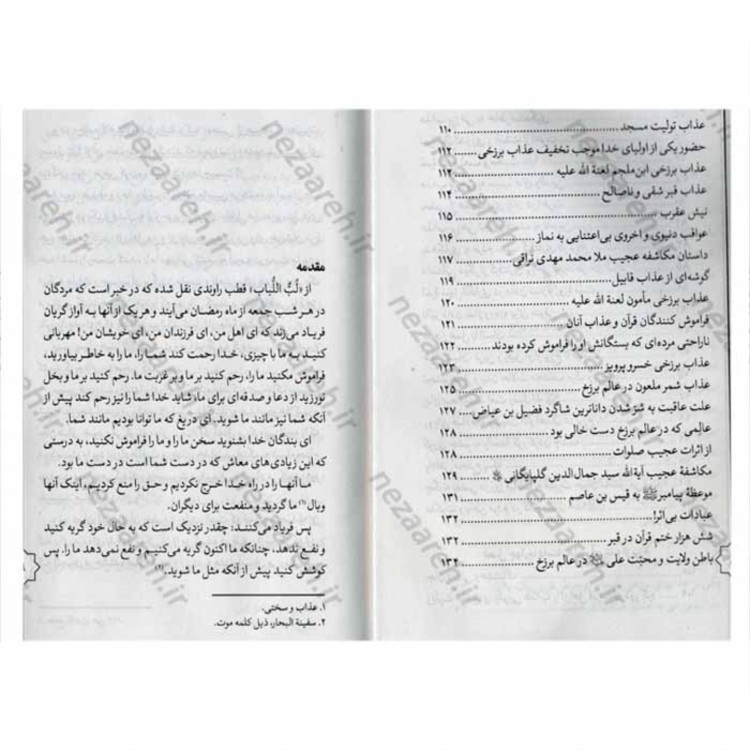 عذاب تولیت مسجد ۱۱۰
حضور یکی از اولیای خدا موجب تخفیف عذاب برزخی ۱۱۲
عذاب برزخی ابن ملجم لعنة الله علیه ۱۱۲
عذاب قبر شقی و ناصالح ۱۱۴
نیش عقرب ۱۱۵
عواقب دنیوی و اخروی بی‌اعتنایی به نماز ۱۱۶
داستان مکاشفه عجیب ملا محمد مهدی نراقی ۱۱۷
گوشه‌ای از عذاب قابیل ۱۱۹
عذاب برزخی مأمون لعنة الله علیه ۱۲۰
فراموش کنندگان قرآن و عذاب آنان ۱۲۱
ناراحتی مرده‌ای که بستگانش او را فراموش کرده بودند ۱۲۲
عذاب برزخی خسرو پرویز ۱۲۳
عذاب شمر ملعون در عالم برزخ ۱۲۵
علت عاقبت به شر شدن داناترین شاگرد فضیل بن عیاض ۱۲۷
عالمی که در عالم برزخ دست خالی بود ۱۲۸
از اثرات عجیب صلوات ۱۲۸
مکاشفهٔ عجیب آیة الله سید جمال‌الدین گلپایگانی ۱۲۹
موعظهٔ پیامبر ﷺ به قیس بن عاصم ۱۳۱
عبادات بی‌اثر! ۱۳۲
شش هزار ختم قرآن در قبر ۱۳۲
باطن ولایت و محبّت علی در عالم برزخ ۱۳۴
مقدمه
از «لُبُّ اللُّباب» قطب راوندی نقل شده که در خبر است که مردگان
در هر شب جمعه از ماه رمضان می‌آیند و هر یک از آنها به آواز گریان
فریاد می‌زند که ای اهل من، ای فرزندان من، ای خویشان من! مهربانی
کنید به ما با چیزی، خدا رحمت کند شما را، ما را به خاطر بیاورید،
فراموش مکنید ما را، رحم کنید بر ما و بر غربت ما. رحم کنید بر ما و بخل
نورزید از دعا و صدقه‌ای برای ما، شاید خدا شما را نیز رحم کند پیش از
آنکه شما نیز مانند ما شوید. ای دریغ که ما توانا بودیم مانند شما.
ای بندگان خدا بشنوید سخن ما را و ما را فراموش نکنید، به درستی
که این زیادی‌های معاش که در دست شما است در دست ما بود.
ما آنها را در راه خدا خرج نکردیم و حق را منع کردیم، اینک آنها
وبال (۱) ما گردید و منفعت برای دیگران.
پس فریاد می‌کنند: چقدر نزدیک است که به حال خود گریه کنید
و نفع ندهد، چنانکه ما اکنون گریه می‌کنیم و نفع نمی‌دهد ما را. پس
کوشش کنید پیش از آنکه مثل ما شوید. (۲)
۱. عذاب و سختی.
۲. سفینة البحار، ذیل کلمه موت.
nezaareh.ir
nezaareh.ir
nezaareh.ir
nezaareh.ir
nezaareh.ir